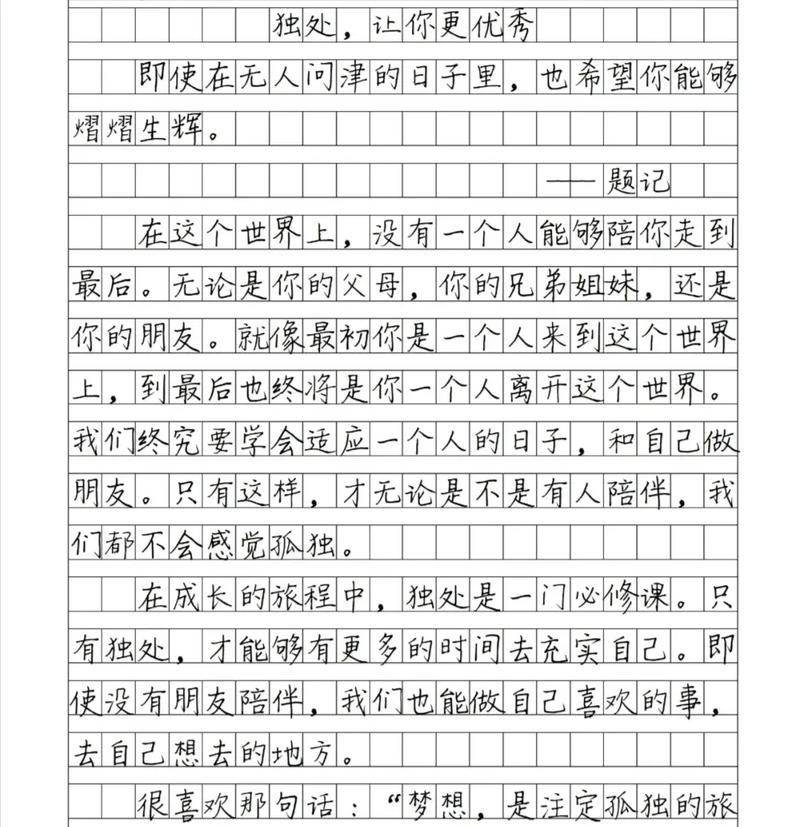 独处，让你更优秀
即使在无人问津的日子里，也希望你能够
熠熠生辉。
——题记
在这个世界上，没有一个人能够陪你走到
最后。无论是你的父母，你的兄弟姐妹，还是
你的朋友。就像最初你是一个人来到这个世界
上，到最后也终将是你一个人离开这个世界。
我们终究要学会适应一个人的日子，和自己做
朋友。只有这样，才无论是不是有人陪伴，我
们都不会感觉孤独。
在成长的旅程中，独处是一门必修课。只
有独处，才能够有更多的时间去充实自己。即
使没有朋友陪伴，我们也能做自己喜欢的事，
去自己想去的地方。
很喜欢那句话：“梦想，是注定孤独的旅